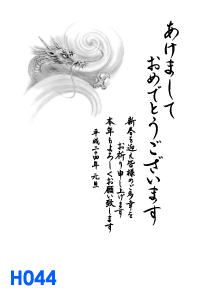 あけまして
おめでとうございます
新春を迎え皆様のご多幸を
お祈り申し上げます
本年もよろしくお願い致します
平成二十四年 元旦
H044